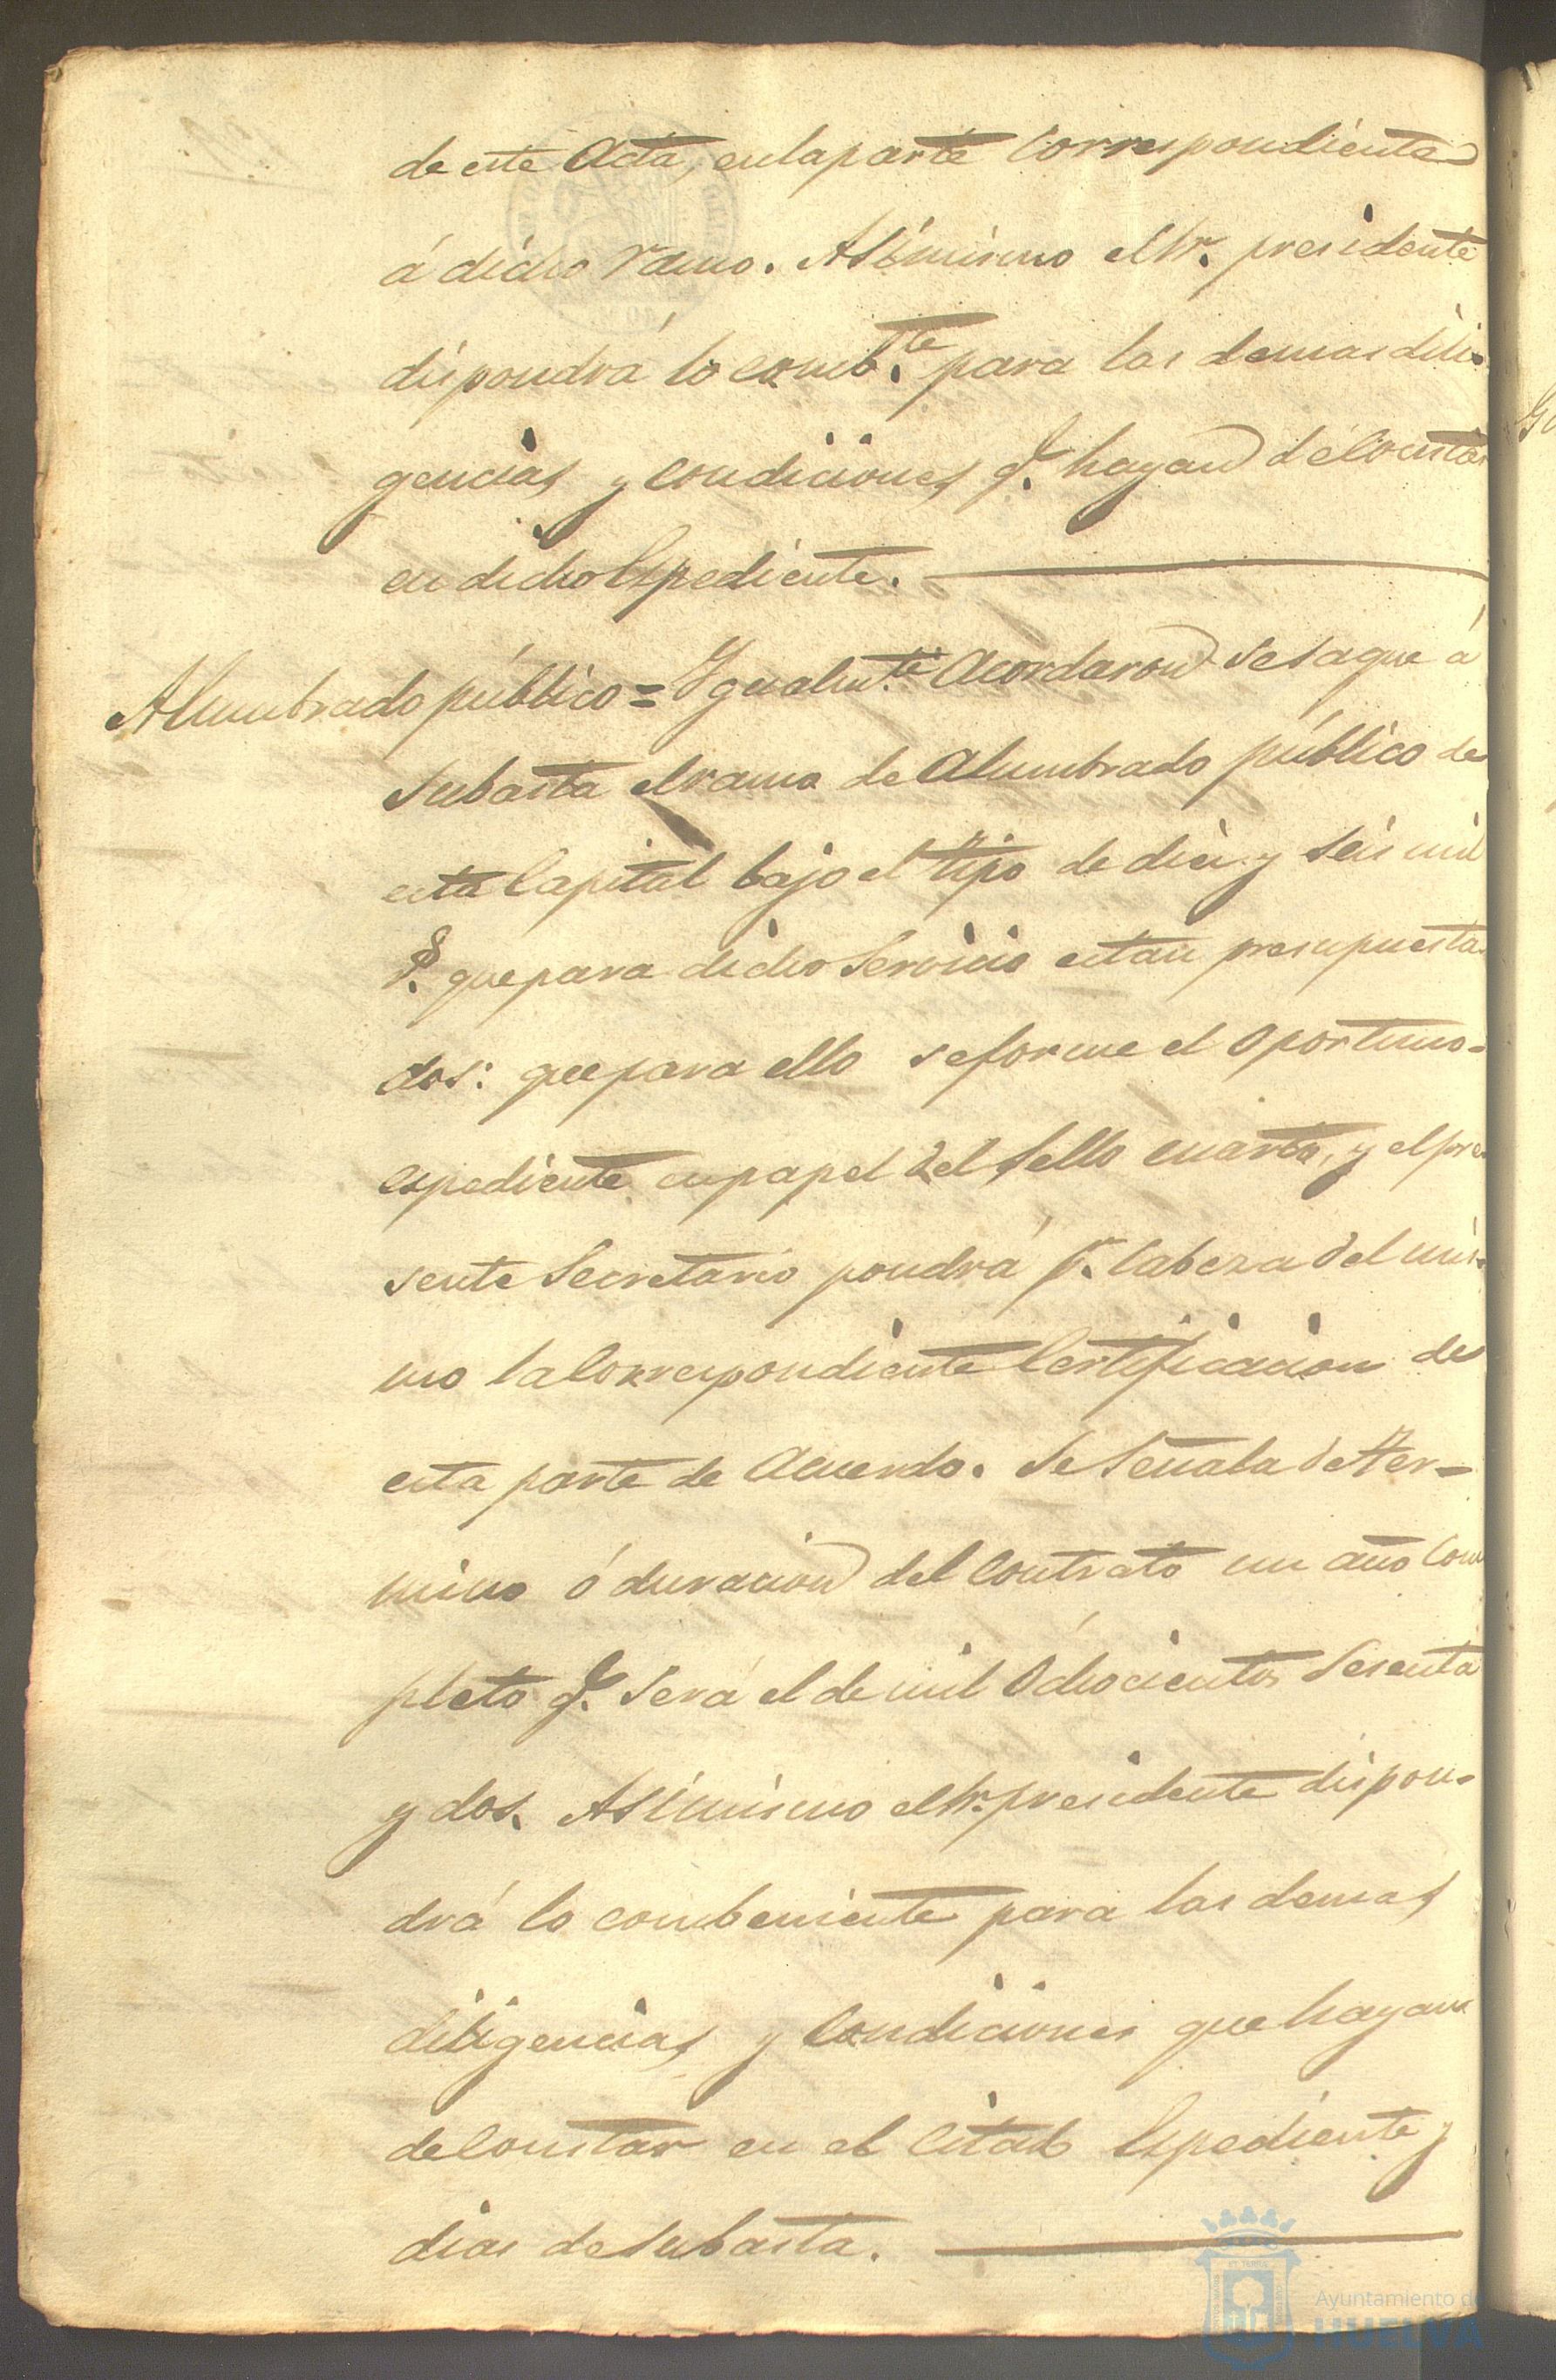 de este Acta, en la parte Correspondiente
á dicho ramo. Asimismo el Sr. presidente
dispondrá lo comb.te para las demas dili-
gencias y condiciones q.e hayan de Constar
en dicho Espediente.
Alumbrado público = Ygualm.te Acordaron se saque á
Subasta el ramo de Alumbrado público de
esta Capital bajo el tipo de diez y seis mil
que para dicho Servicio estan presupuesta-
dos: que para ello se forme el Oportuno-
espediente en papel del Sello cuarto, y el pre-
sente Secretario pondrá p.r Cabeza del mis-
mo la Correspondiente Certificacion de
esta parte de Acuerdo. Se Señala de ter-
mino ó duracion del Contrato un año Com
pleto q.e Será el de mil Ochocientos Sesenta
y dos. Asimismo el Sr. presidente dispon-
drá lo combeniente para las demas
diligencias y Condiciones que hayan
de Constar en el Citado Espediente y
dias de Subasta.
Ayuntamiento de
HUELVA